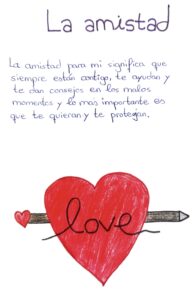 La amistad
La amistad para mi significa que
siempre están contigo, te ayudan y
te dan consejos en los malos
momentos y lo mas importante es
que te quieran y te protejan.
love